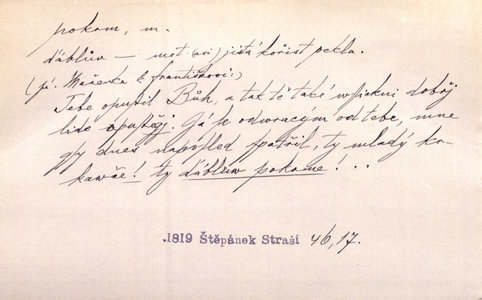 pokom, m.
ďáblův — met. (asi) jistá kořist pekla.
(já. Mařenka k Františkovi:)
Tebe opustil Bůh, a tak tě také wssickni dobřj
lidé opustěgj. Gá se odwracým od tebe, mne
gsy dnes naposled spatřil, ty mladý kr-
kawče! ty ďáblůw pokome! ..
.1819 Štěpánek Straši 46,17.